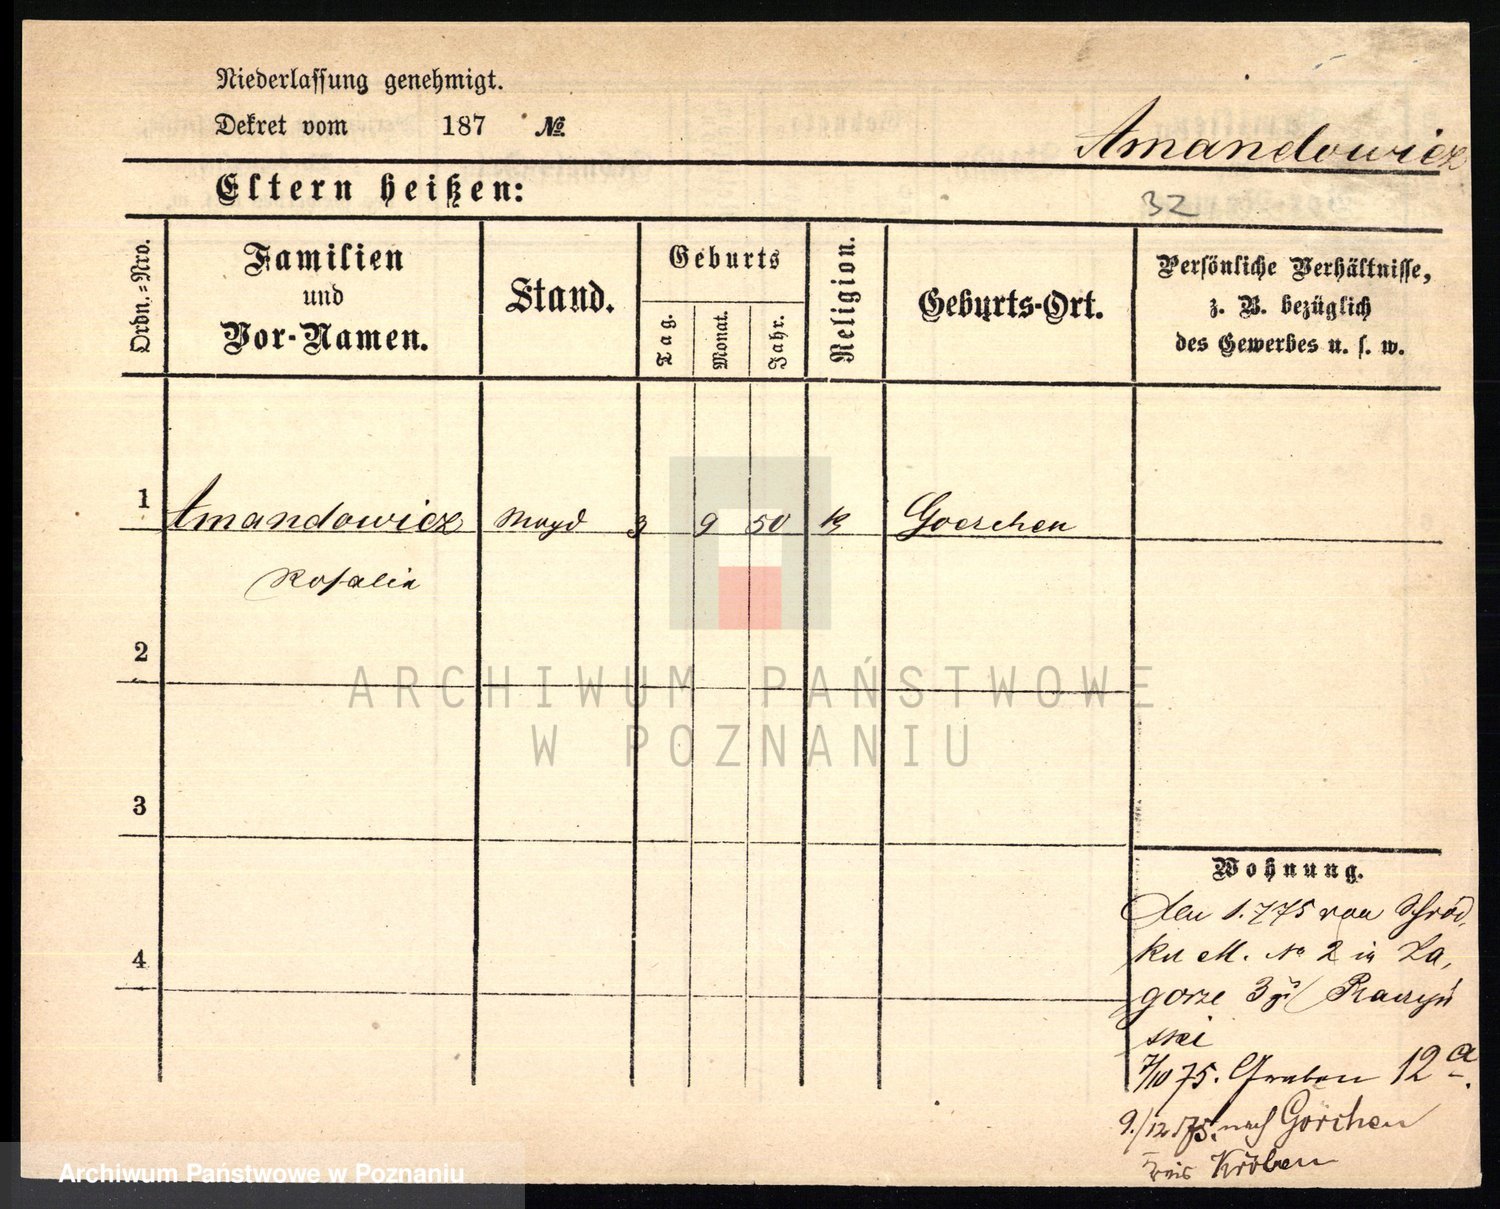 Niederlassung genehmigt.
Dekret vom 187 №
Amandowicz
Eltern heißen:
32
Ordn.-Nro.
Familien
und
Vor-Namen.
Stand.
Geburts
Tag.
Monat.
Jahr.
Religion.
Geburts-Ort.
Persönliche Verhältnisse,
z. B. bezüglich
des Gewerbes u. s. w.
1 Amandowicz Magd 3 9 50 k Goerchen
Rosalia
2
ARCHIWUM PAŃSTWOWE
W POZNANIU
3
Wohnung.
Den 1.7 75 von Schrod,
ka M. No 2 in Za,
4
gorze 3 Raczyń
ski
7/10 75. Graben 12a.
9./12 75. nach Görchen
Kreis Kröben
Archiwum Państwowe w Poznaniu